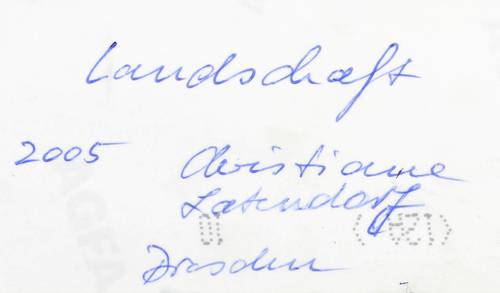 Landschaft
2005 Christiane
Latendorf
Dresden